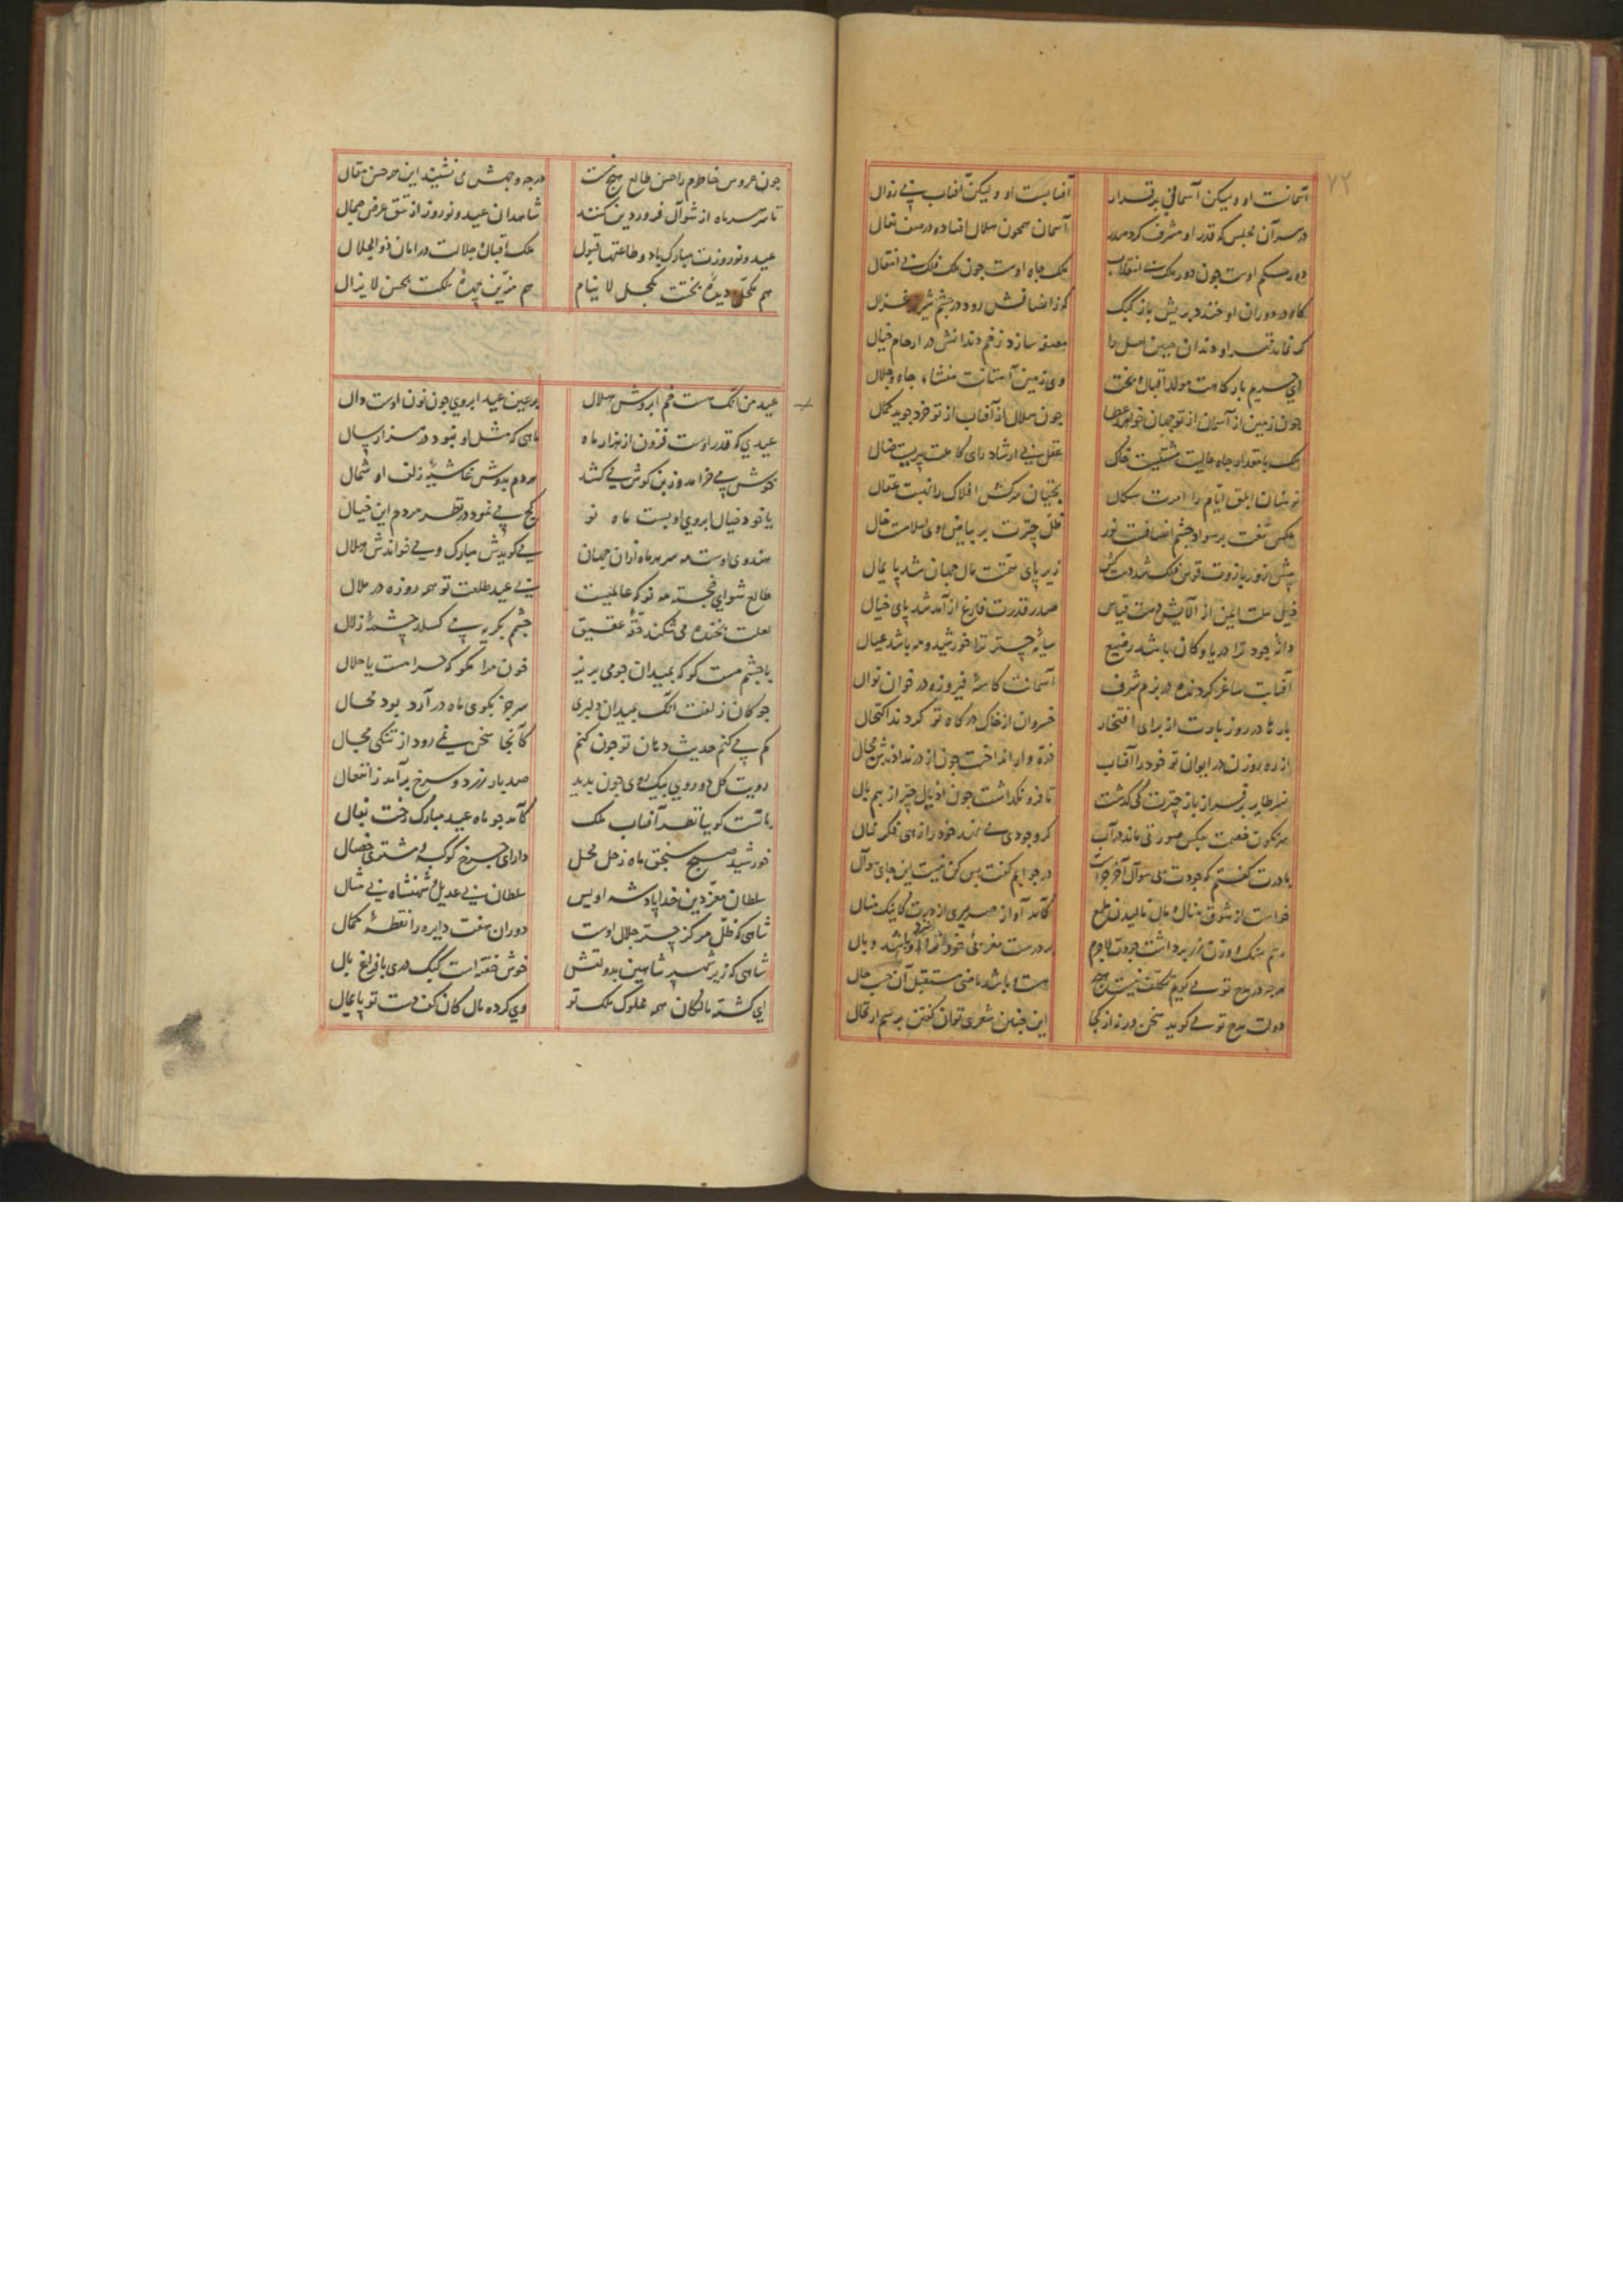 ۷۲
آسمانست او ولیکن آسمانی برقرار آفتابست او ولیکن آفتاب بی زوال
در سر آن مجلس که قدر او مشرف کرد صدر آسمان همچون هلال افتاده در صف نعال
دور حکم اوست چون دور فلک بی انقلاب ملک جاه اوست چون ملک ملک بی انتقال
گاه در دوران او خندد بریش باز کبک که ز انصافش رود در چشم شیر غزال
ای حریم بارگاهت مولد اقبال و بخت وی زمین آستانت منشاء جاه و جلال
چون زمین از آسمان از تو جهان خواهد عطا چون هلال از آفتاب از تو خرد جوید کمال
ملک با مقدار جاه عالیت مشتیست خاک عقل بی ارشاد رای کاملت پیریست ضال
توسنان ابلق ایام را امرت شکال بختیان سرکش افلاک را نهیت عقال
عکس تیغت بر سواد چشم انصافست نور ظل چترت بر بیاض روی اسلامست خال
پیش زور بازوت قوس فلک شد دست کش زیر پای همتت مال جهان شد پایمال
ذیل ملت ایمن از آلایش دست قیاس صدر قدرت فارغ از آمد شد پای خیال
دایهٔ جود ترا دریا و کان باشد رضیع سایهٔ چتر ترا خورشید و مه باشد عیال
آفتابت ساغر گردنده در بزم شرف آسمانت کاسهٔ فیروزه در خوان نوال
بارها در روز بارت از برای افتخار خسروان از خاک درگاه تو کردند اکتحال
از ره روزن در ایوان تو خود را آفتاب ذره وار انداخت چون از در ندادندش مجال
سرنگون خصمت بعکس صورتی ماند در آب کز وجودی می نهد خود را زهی فکر محال
با درت گفتم که جودت بی سوال آخر چراست در جوابم گفت بس کن نیست این جای سوال
هر چه در مدح تو می گویم تکلف نیست هیچ
دولت مدح تو می گوید سخن ورنه از کجا این چنین شعری توان گفتن برسم ارتجال
چون عروس خاطرم را حسن طالع هیچ نیست هر چه وجهش می نشیند این چه حسن مقال
تا سر ماه از شوال فروردین کنند شاهدان عید و نوروز از تتق عرض جمال
عید و نوروزت مبارک باد و طاعتها قبول ملک اقبال و جلالت در امان ذوالجلال
هم مکحل دیدهٔ بختت بکحل لا ینام هم مزین چهرهٔ ملکت بحسن لا یزال
عید من آنک هست خم ابروش هلال بر عین عید ابروی چون نون اوست دال
عیدی که قدر اوست فزون از هزار ماه ماهی که مثل او نبود در هزار سال
خوش می خرامد و ز بن گوش می کشد هر دم بدوش غاشیهٔ زلف او شمال
یا خود خیال ابروی او بست ماه نو کج می نمود در نظر مردم این خیال
هندوی اوست مه سر هر ماه از آن جهان می گویدش مبارک و می خواندش هلال
طالع شو ای خجسته مه نو که عالمیست بی عید طلعت تو همه روزه در ملال
لعلت بخنده می شکند حقهٔ عقیق چشمم بگریه می گسلد چشمهٔ زلال
با چشم مست گو که بمیدان چو می بریز خون مرا مگو که حرامست یا حلال
چوگان زلفت آنک بمیدان دلبری سر جز بگوی ماه در آرد بود محال
گم می کنم حدیث دهان تو چون کنم کآنجا سخن نمی رود از تنگی مجال
رویت گل دو روی بیک روی چون بدید صد بار زرد و سرخ برآمد ز انفعال
ماتست گوییا نظر آفتاب ملک کآمد چو ماه عید مبارک رخت بفال
خورشید صبح سنجق ماه زحل محل دارای چرخ کوکبه و مشتری خصال
سلطان معز دین خدا پادشه اویس سلطان بی عدیل و شهنشاه بی مثال
شاهی که ظل مرکز چتر جلال اوست دوران هفت دایره را نقطهٔ کمال
شاهی که زیر شهپر شاهین بدولتش خوش خفته است کبک دری با فراغ بال
ای گشته مالکان همه مملوک ملک تو وی کرده مال کان کف دست تو پایمال